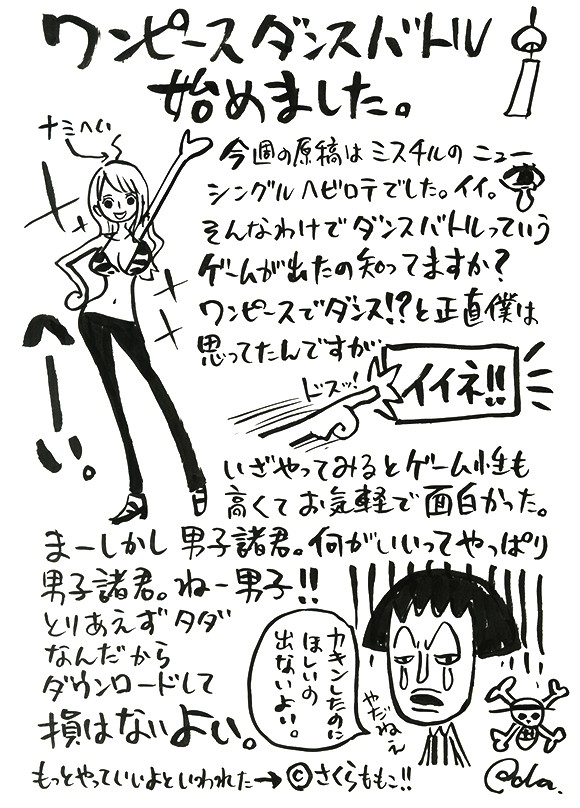 ワンピースダンスバトル
始めました。
ナミへい
今週の原稿はミスチルのニュー
シングルヘビロテでした。イイ。
そんなわけでダンスバトルっていう
ゲームが出たの知ってますか?
ワンピースでダンス!?と正直僕は
思ってたんですが…
ドスッ!
イイネ!!
へーい。
いざやってみるとゲーム性も
高くてお気軽で面白かった。
まーしかし男子諸君。何がいいってやっぱり
男子諸君。ねー男子!!
とりあえずタダ
なんだから
ダウンロードして
損はないよぃ。
カキンしたのに
ほしいの
出ないよぃ。
やだねぇ
もっとやっていいよといわれた→©さくらももこ!!
@oda.